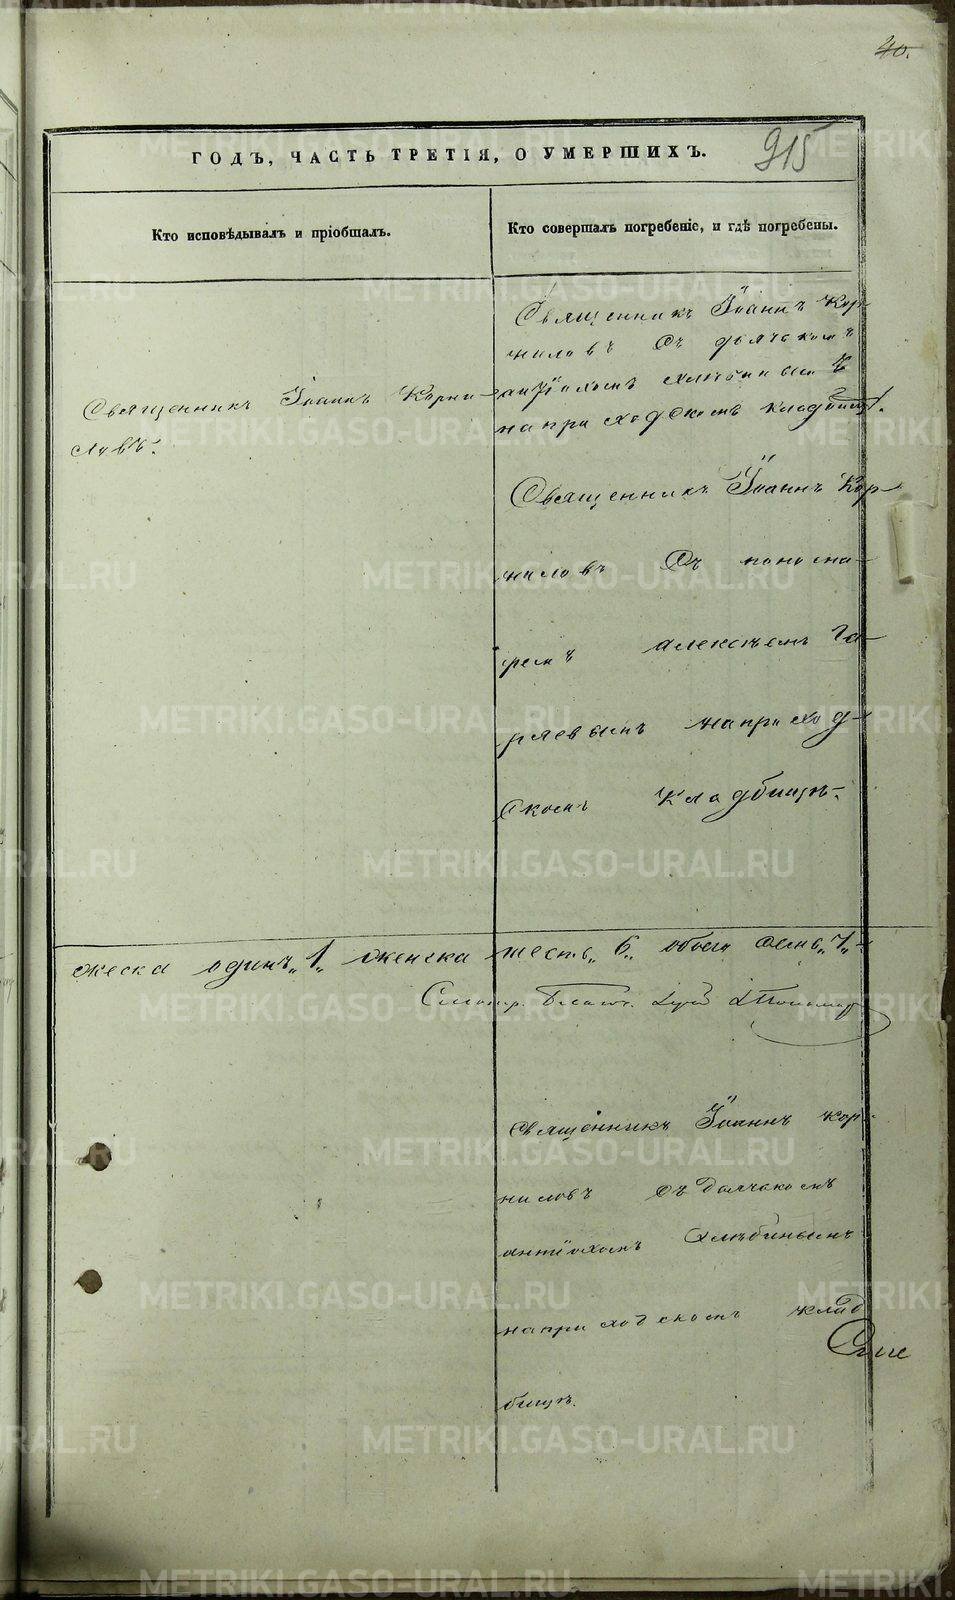 40.
915
ГОДЪ, ЧАСТЬ ТРЕТІЯ, О УМЕРШИХЪ.
Кто исповѣдывалъ и пріобщалъ.
Кто совершалъ погребеніе, и гдѣ погребены.
Священникъ Іоаннъ Корни-
ловъ.
Священникъ Іоаннъ Кор-
ниловъ Съ дьячкомъ
антіохомъ хлѣбинымъ
наприходскомъ кладбищѣ.
Священникъ Іоаннъ Кор-
ниловъ Съ понома-
ремъ алексѣемъ
наприход-
Скомъ Кладбищѣ.
жеска одинъ „1„ женска шесть „6„ обоего семь „7„
Священникъ Іоаннъ Кор-
ниловъ Съ дьячкомъ
антіохомъ Хлѣбинымъ
наприходскомъ клад
бищѣ.
METRIKI.GASO-URAL.RU